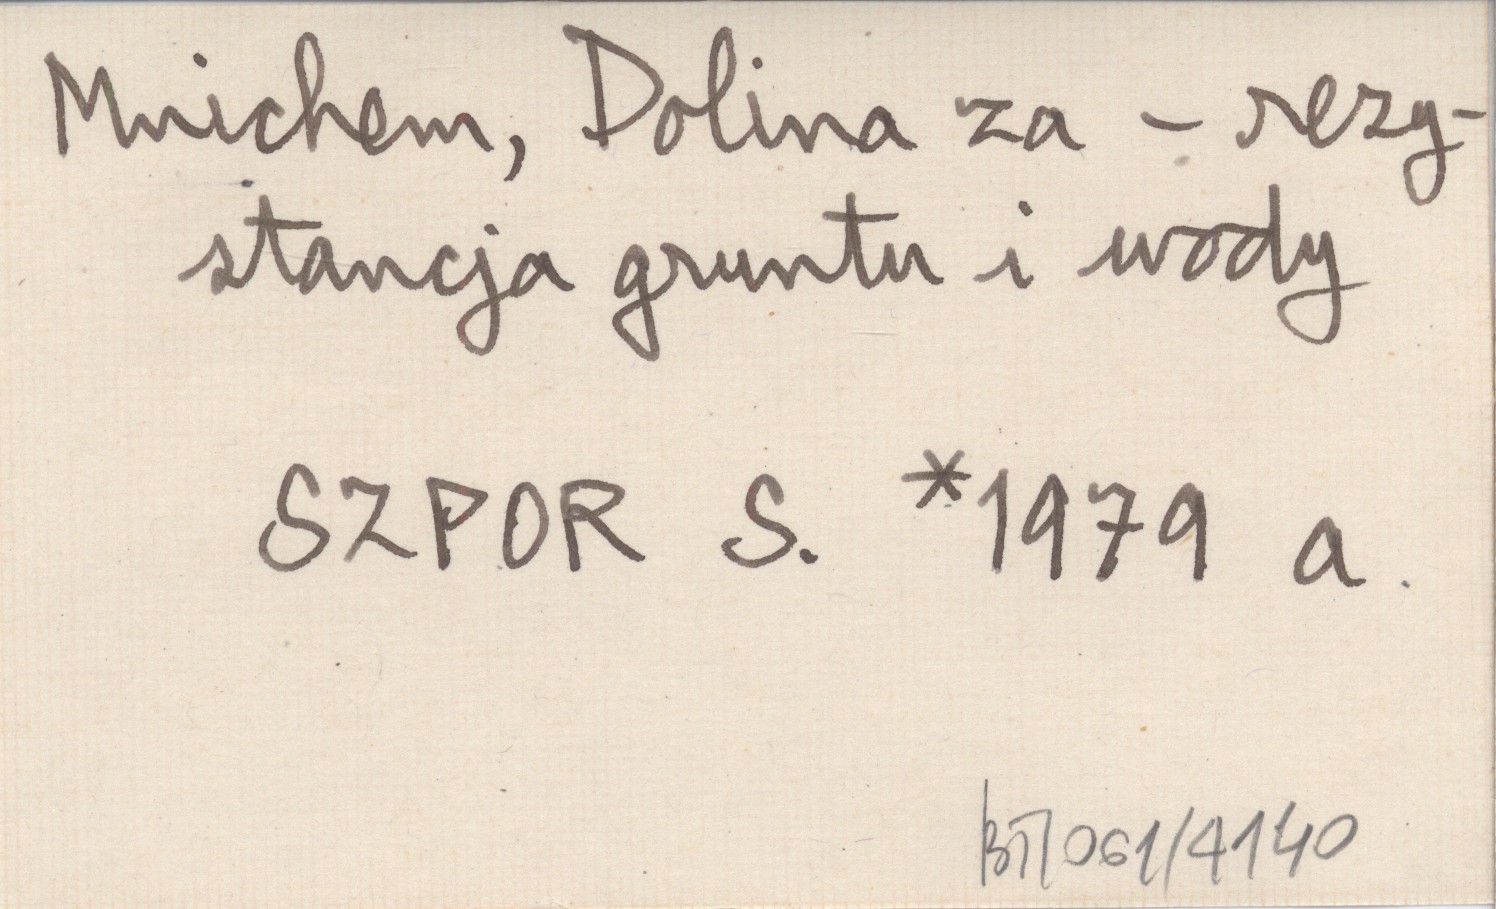 Mnichem, Dolina za - rezy-
stancja gruntu i wody
SZPOR S. *1979 a.
BT/061/4140